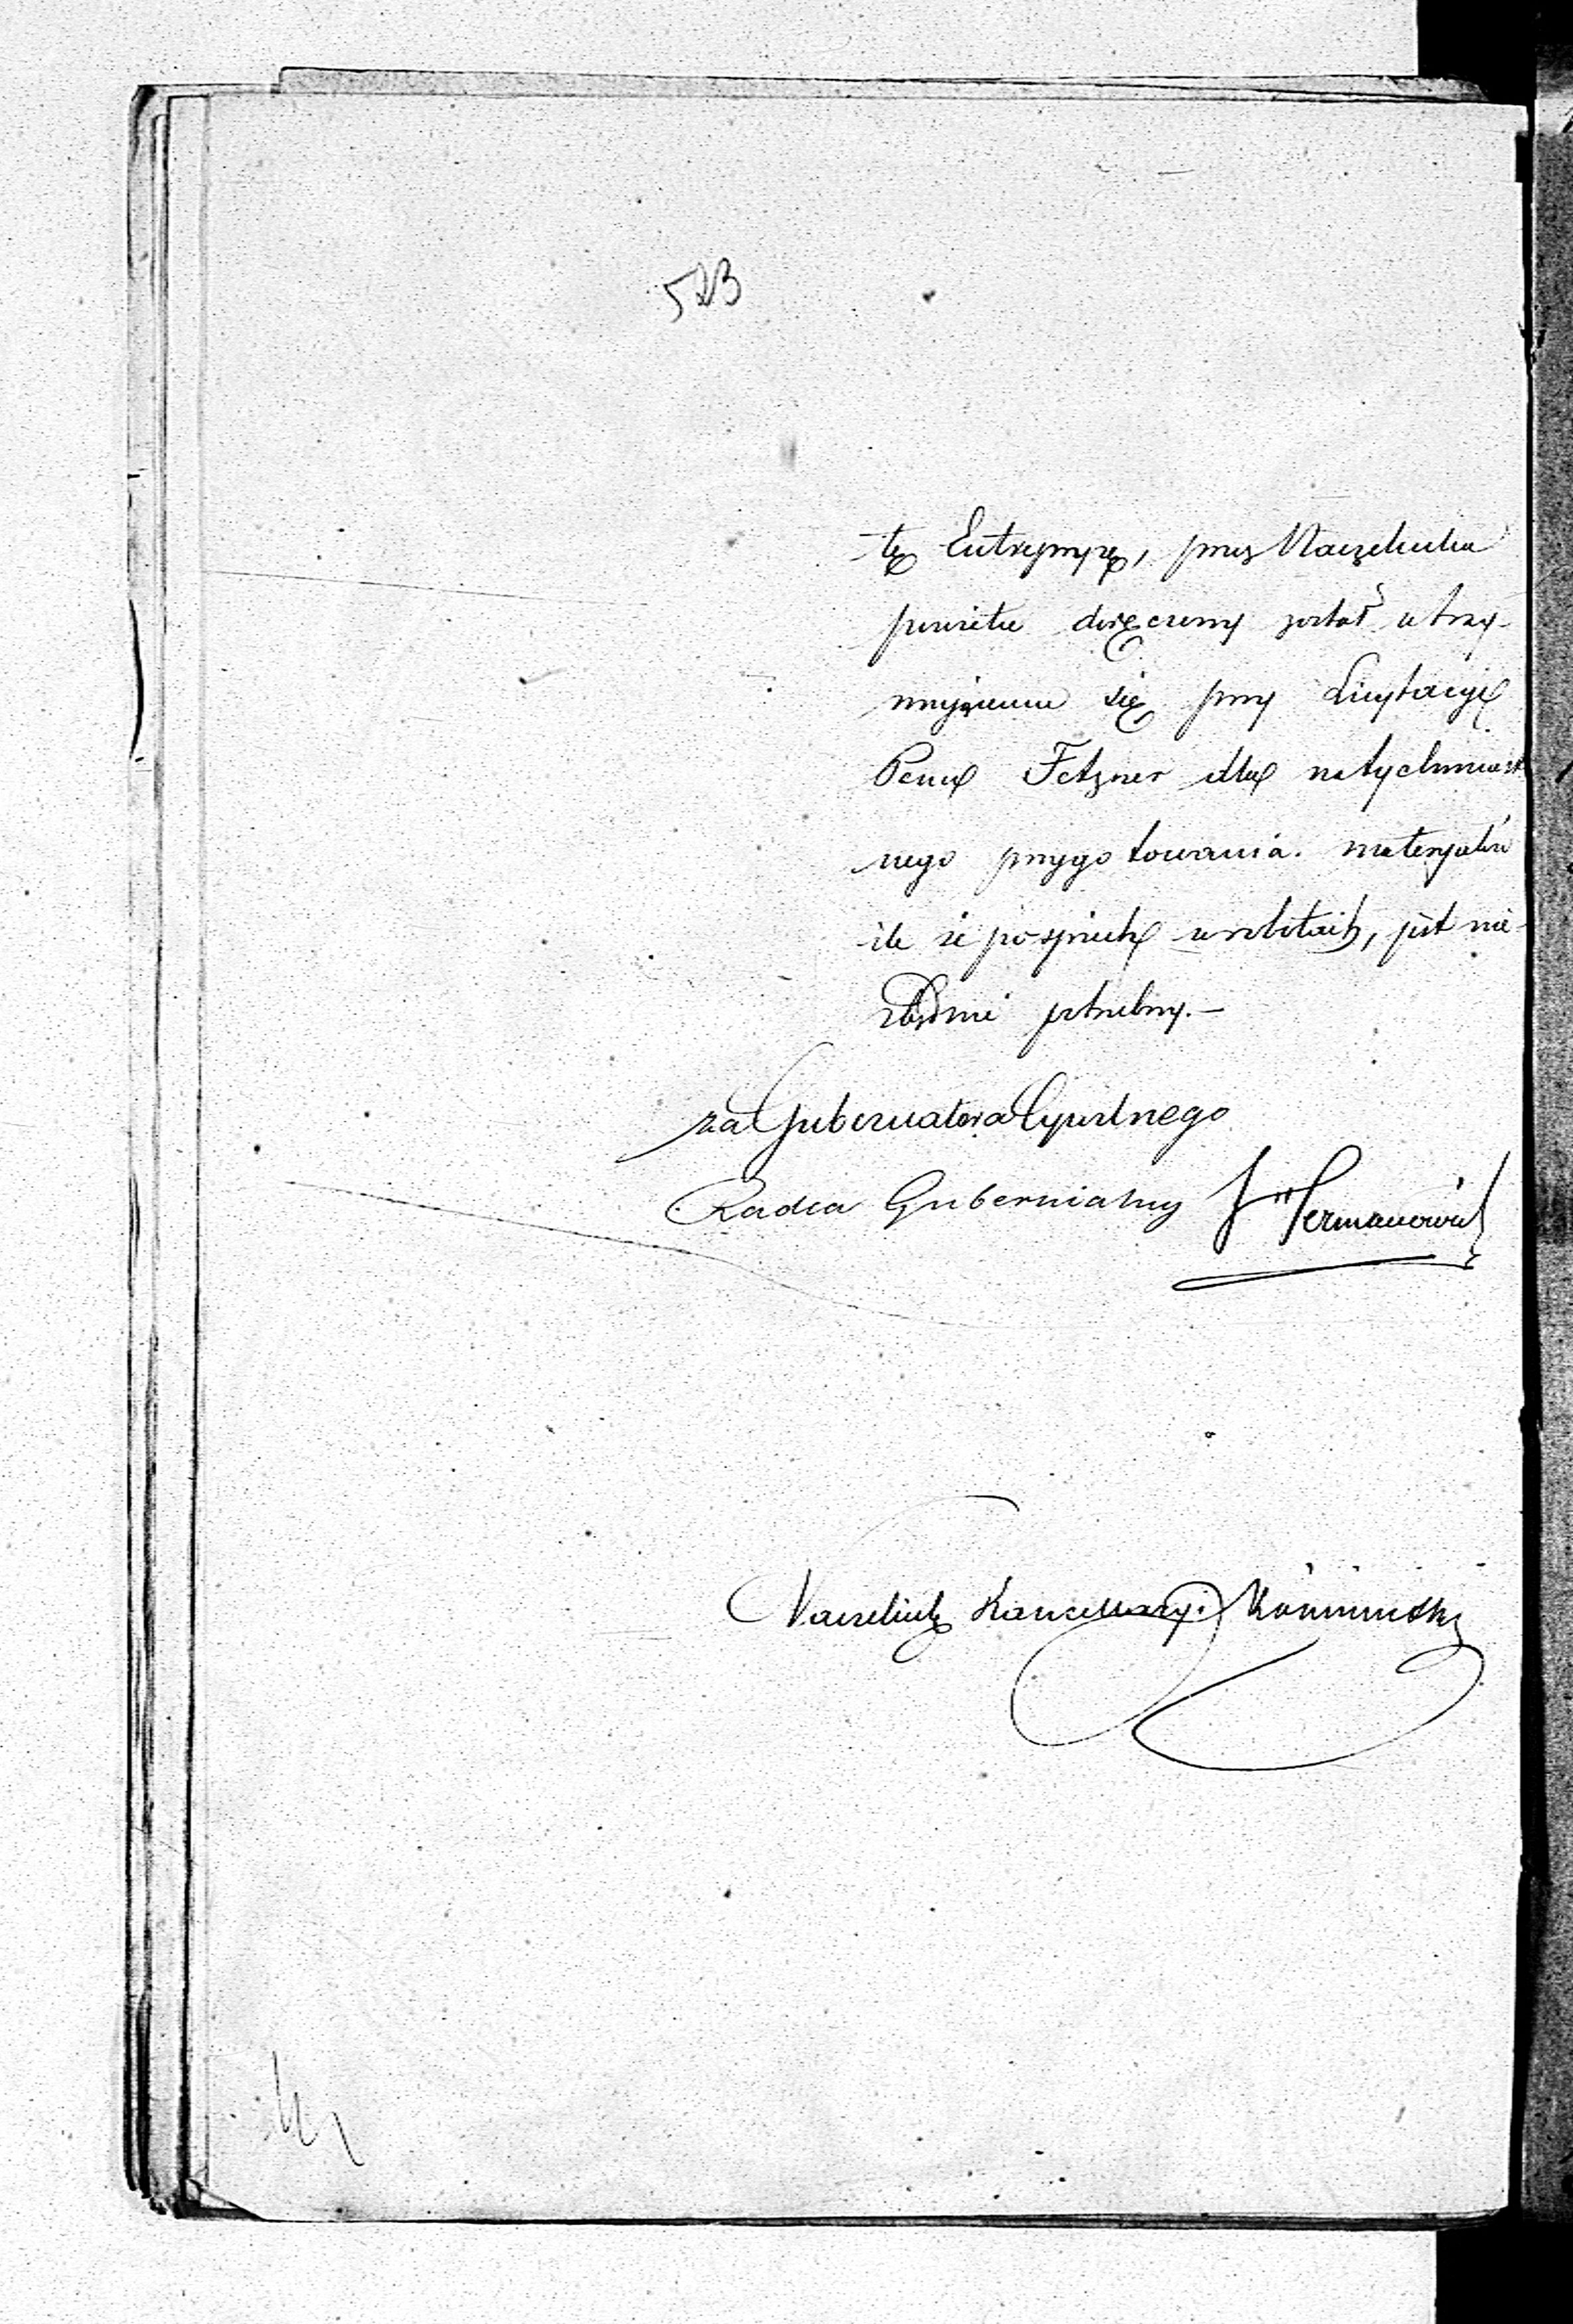 523
tę Entrepryzę, przez Naczelnika
powiatu doręczony został utrzy-
mującemu się przy Licytacyi
Panu Fetzner dla natychmiast
nego przygotowania materyałów
ile że pospiech w robotach, jest nie-
zbędnie potrzebny. —
za Gubernatora Cywilnego
Radca Gubernialny J Hermanowicz
Naczelnik Kancellaryi